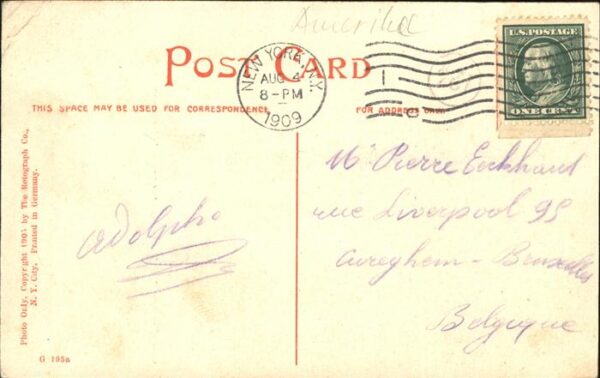 Amerika
POST CARD
NEW YORK, N.Y.
AUG 4
8-PM
1909
U.S. POSTAGE
ONE CENT
THIS SPACE MAY BE USED FOR CORRESPONDENCE
FOR ADDRESS ONLY
Mr Pierre Eeckhaut
rue Liverpool 95
Cureghem - Bruxelles
Belgique
Adolphe
Photo Only, Copyright 1905 by The Rotograph Co.,
N. Y. City, Printed in Germany.
G 195a